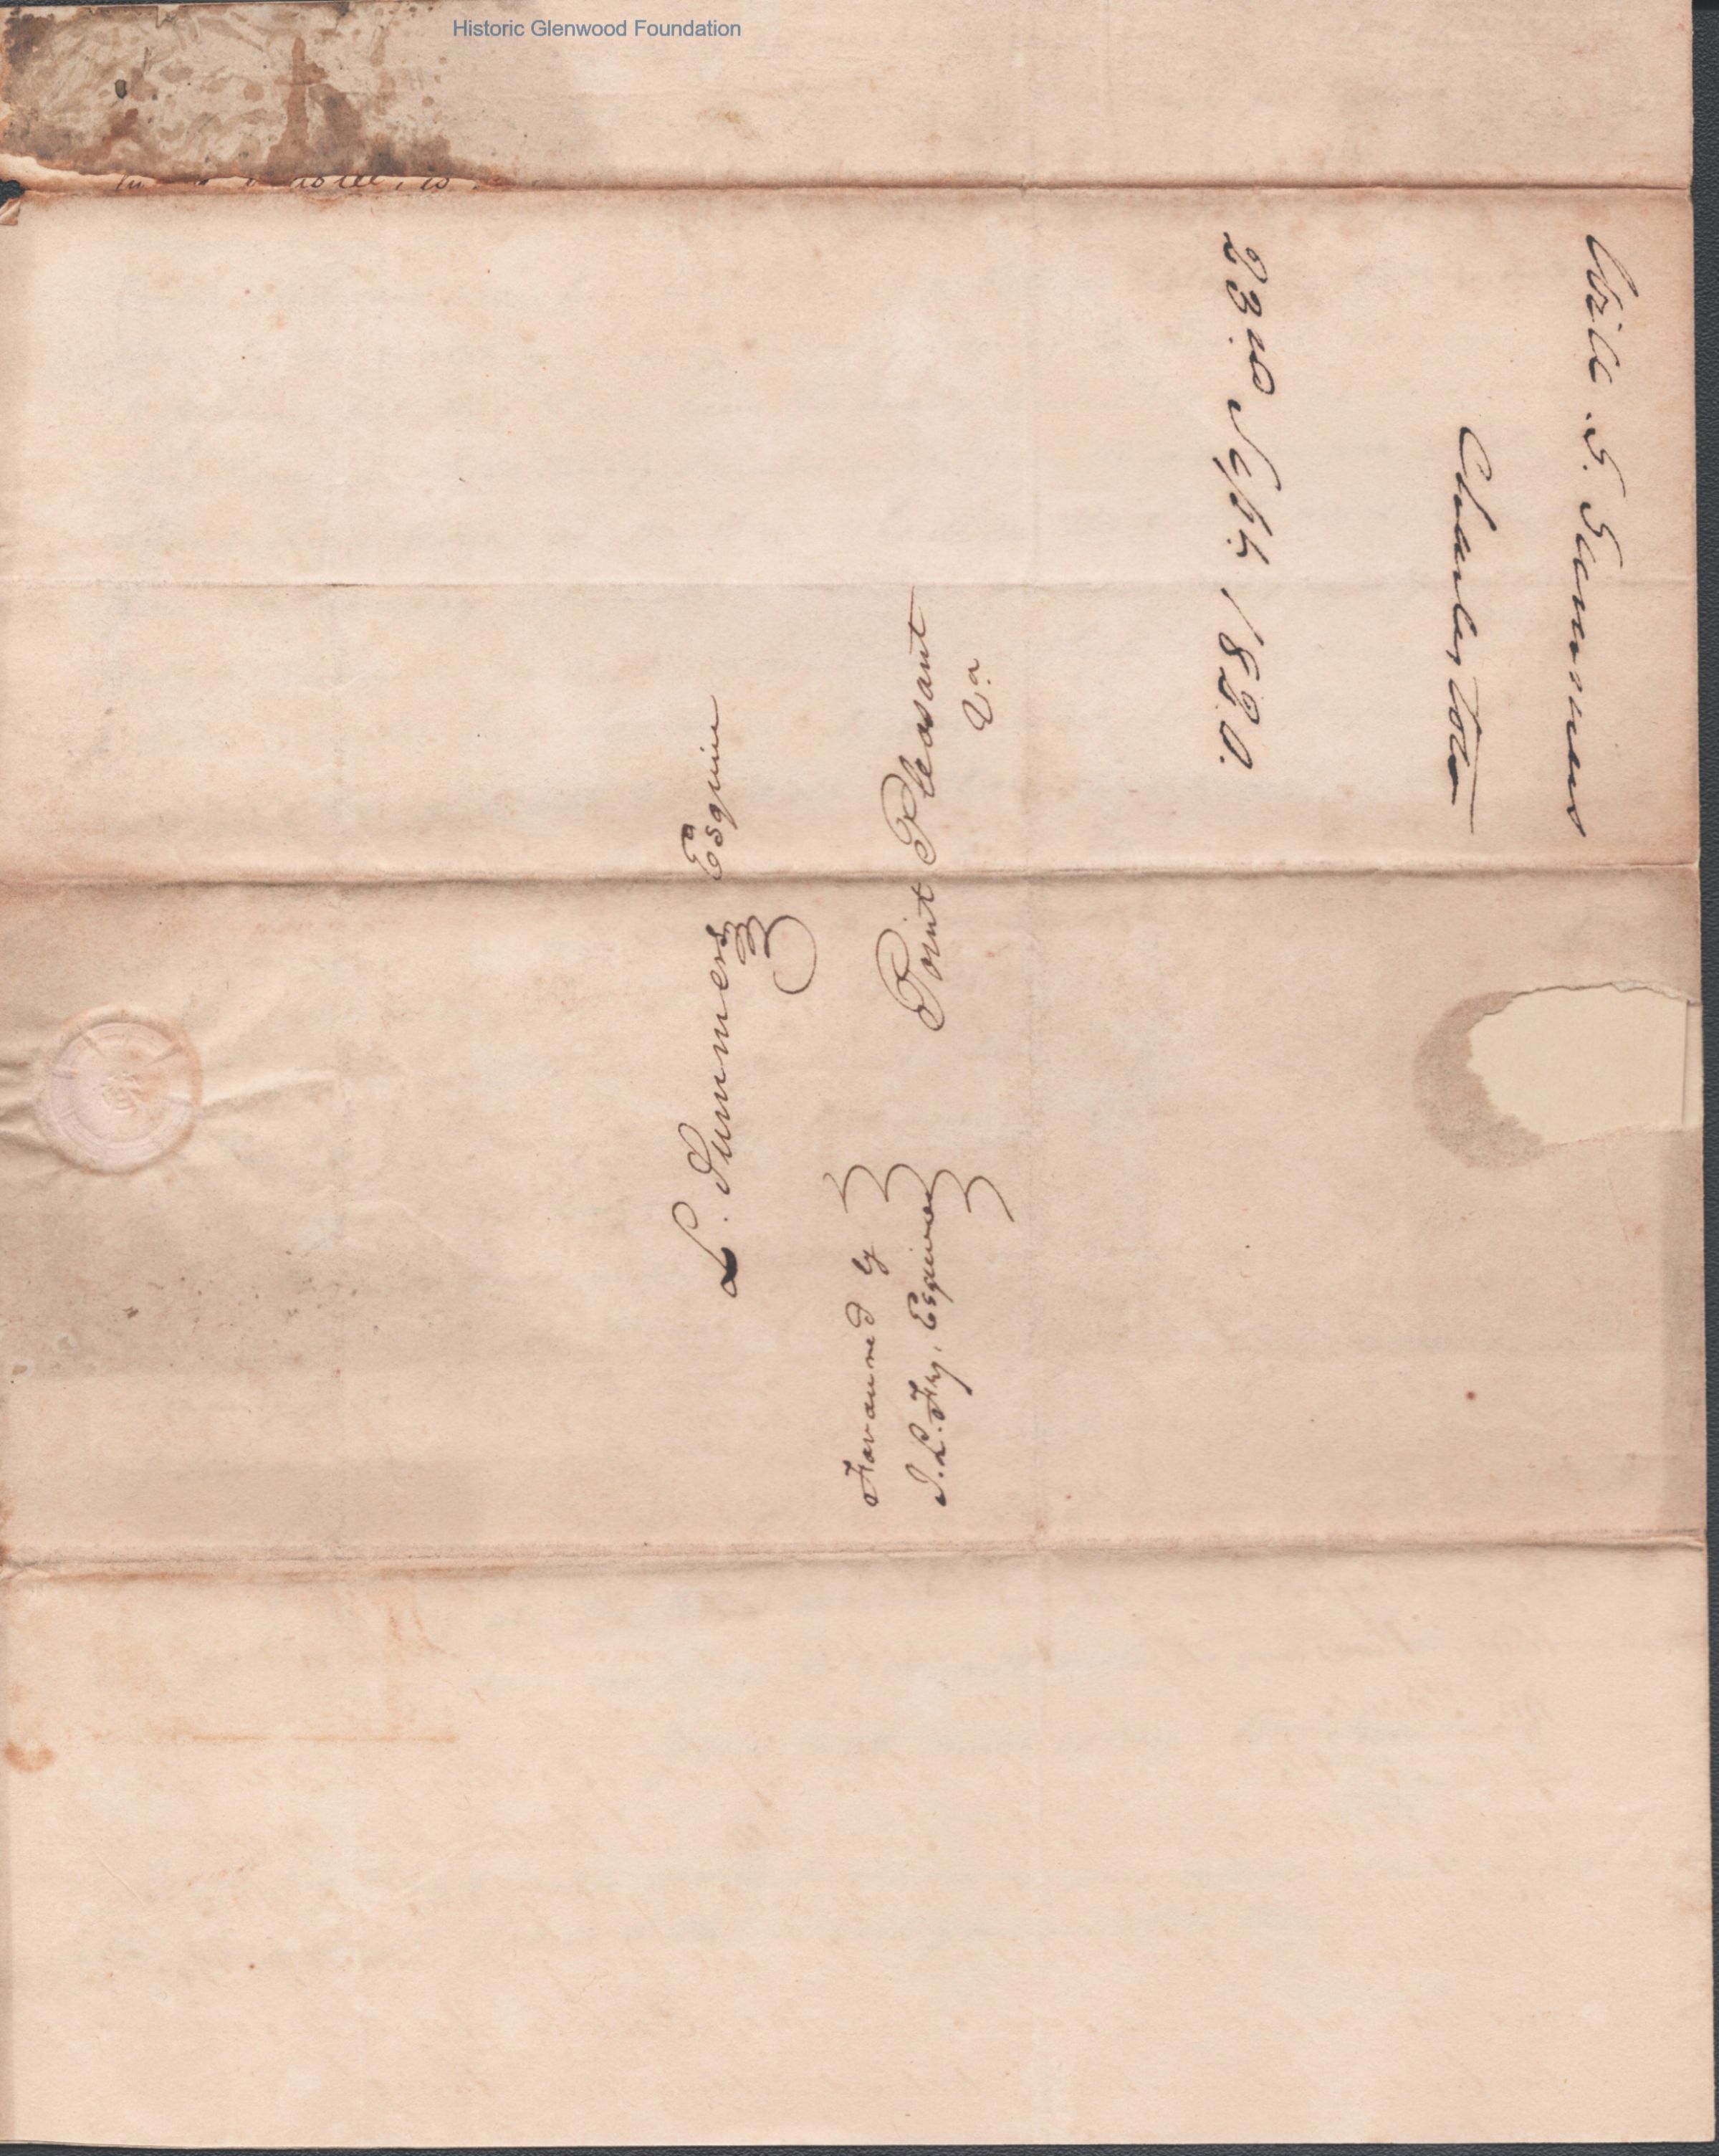 Historic Glenwood Foundation
Will. S. Summers
Charleston
23rd Septr 1820.
L. Summers Esquire
Point Pleasant
Va
Favoured by
J. L. Fry, Esquire